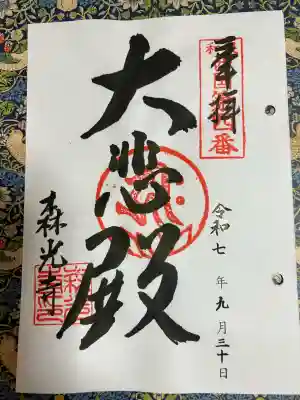 奉拝
大悲殿
森光寺
令和七年九月三十日